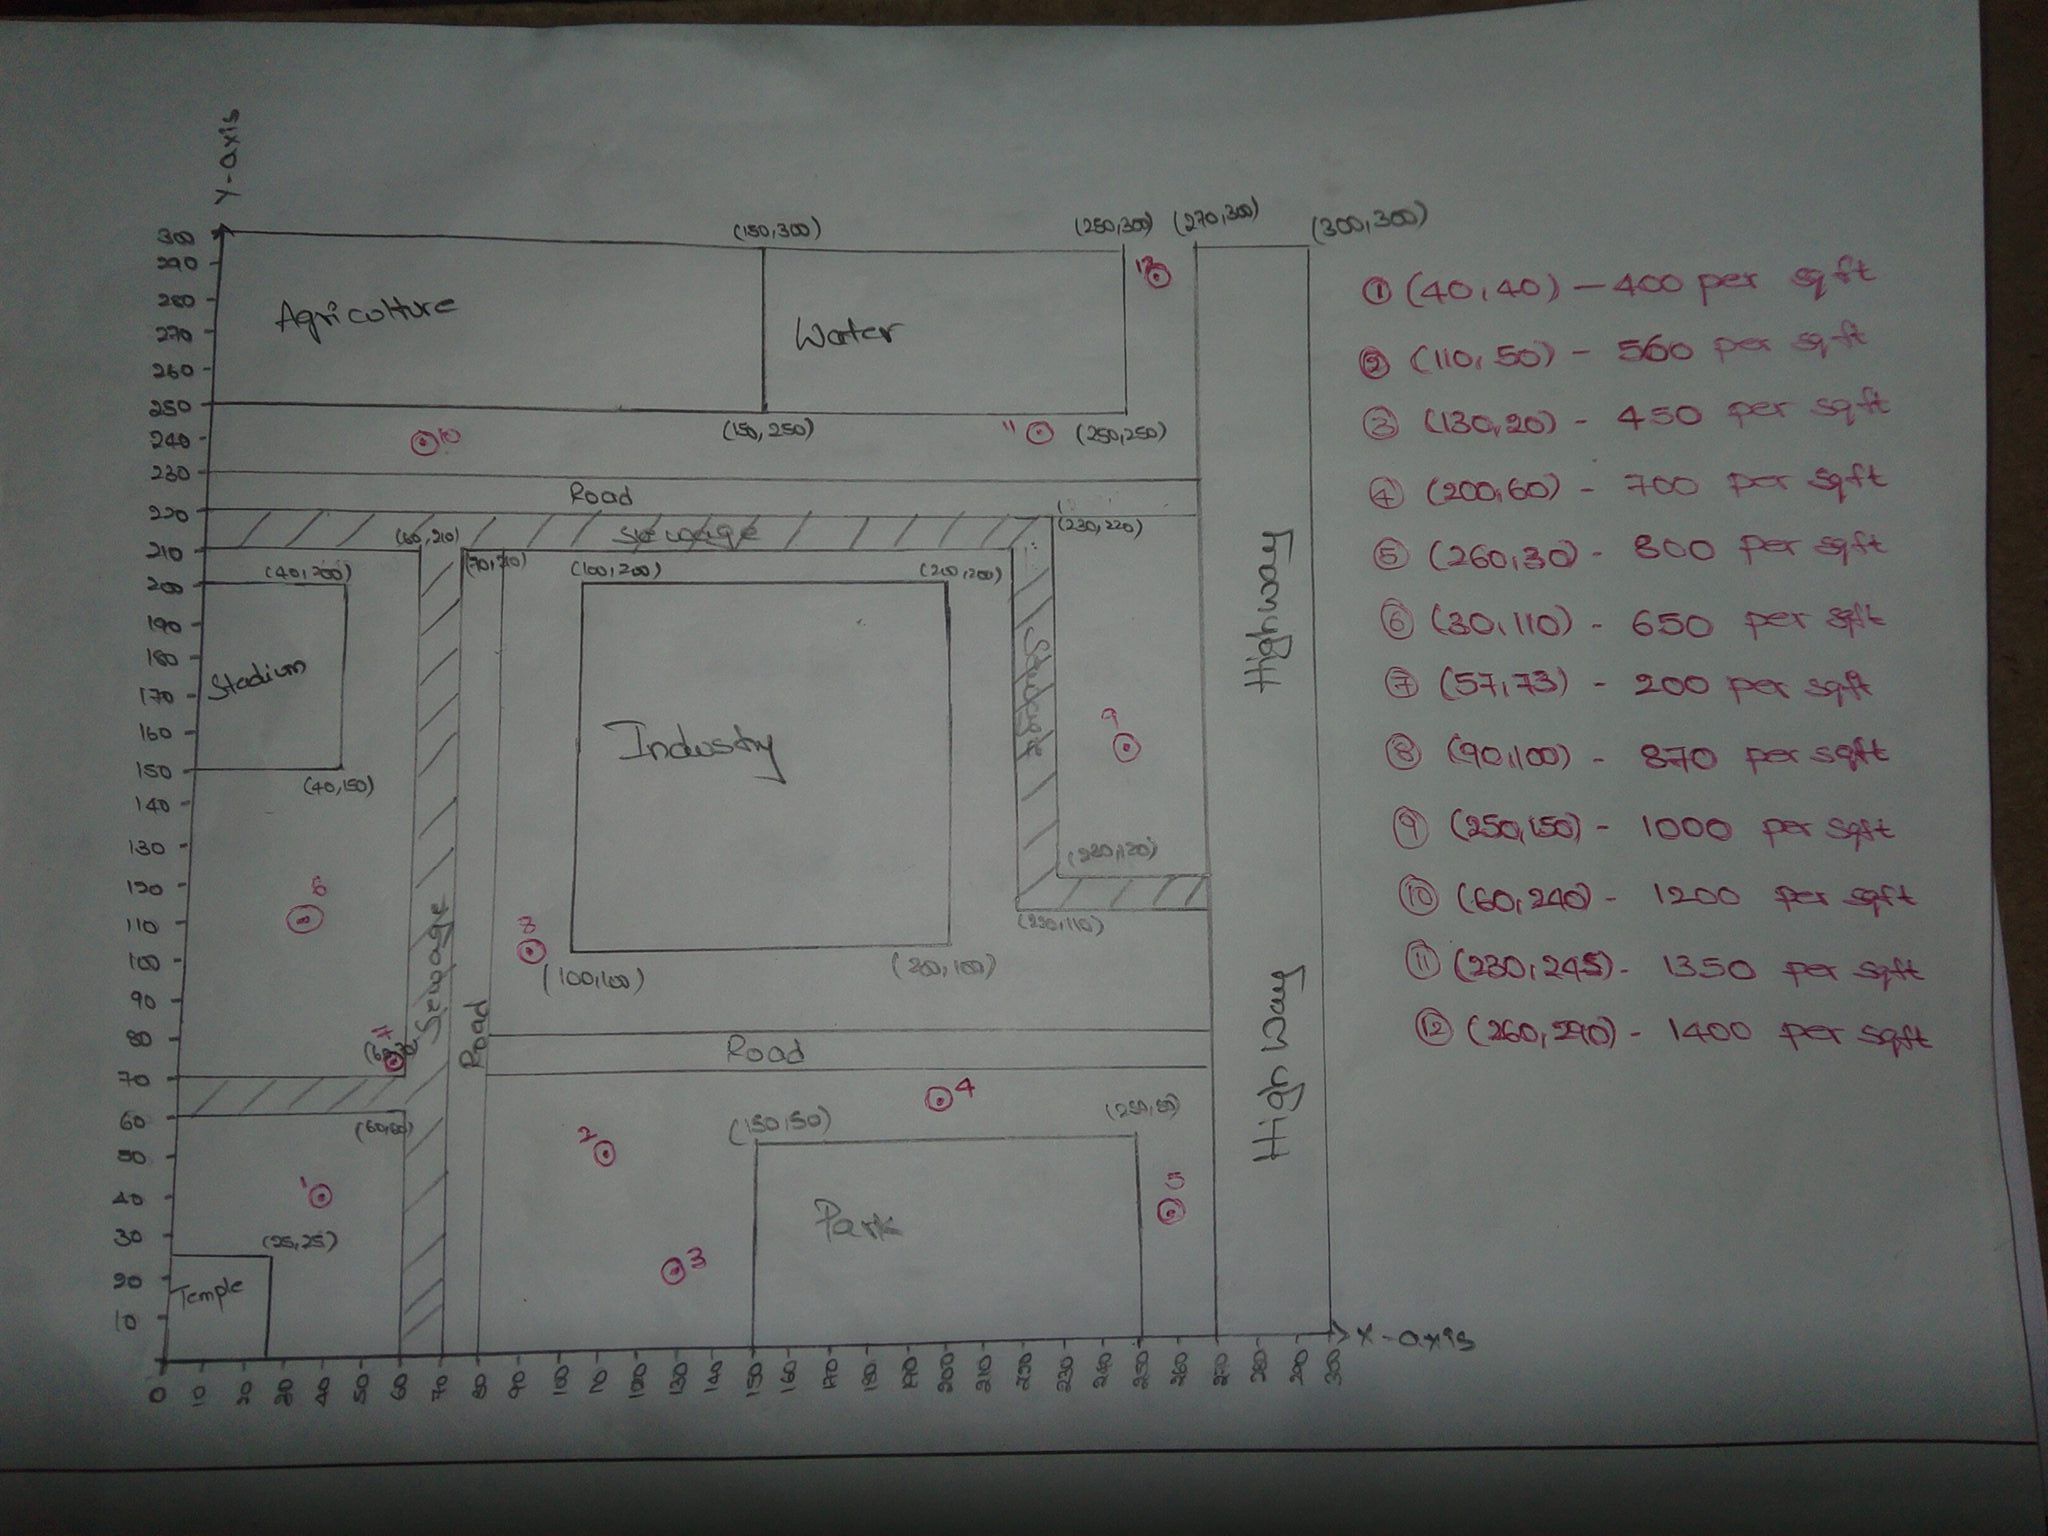 Y-axis
(150,300)
(250,300)
(270,300)
(300,300)
300
290
280
270
260
250
240
230
220
210
200
190
180
170
160
150
140
130
120
110
100
90
80
70
60
50
40
30
20
10
Agriculture
Water
12
10
(150,250)
11
(250,250)
Road
Sewage
(230,220)
(60,210)
(70,210)
(40,200)
(100,200)
(200,200)
Stadium
Industry
Sewage
9
Highway
(40,150)
(230,120)
(220,110)
6
8
(100,100)
(200,100)
Sewage
Road
7
Road
Highway
(60,60)
4
2
(150,50)
(250,50)
1
5
Park
(25,25)
3
Temple
X-axis
0 10 20 30 40 50 60 70 80 90 100 110 120 130 140 150 160 170 180 190 200 210 220 230 240 250 260 270 280 290 300
① (40,40) - 400 per sqft
② (110,50) - 560 per sqft
③ (130,20) - 450 per sqft
④ (200,60) - 700 per sqft
⑤ (260,30) - 800 per sqft
⑥ (30,110) - 650 per sqft
⑦ (57,73) - 200 per sqft
⑧ (90,100) - 870 per sqft
⑨ (250,150) - 1000 per sqft
⑩ (60,240) - 1200 per sqft
⑪ (230,245) - 1350 per sqft
⑫ (260,290) - 1400 per sqft